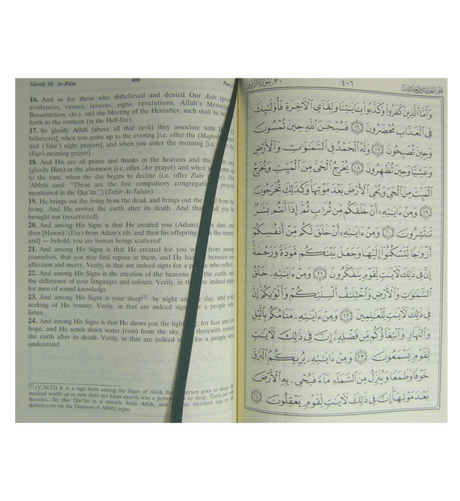 Sûrah 30. Ar-Rûm
16. And as for those who disbelieved and denied Our Ayât
evidences, verses, lessons, signs, revelations, Allâh's
Resurrection, etc.), and the Meeting of the Hereafter, such shall be
forth to the torment (in the Hell-fire).
17. So glorify Allâh [above all that (evil) they associate with
believers)], when you come up to the evening [i.e. offer the
and ('Ishâ') night prayers], and when you enter the morning [i.e.
(Fajr) morning prayer].
18. And His are all praise and thanks in the heavens and the
glorify Him) in the afternoon (i.e. offer 'Asr prayer) and when you come
to the time, when the day begins to decline (i.e. offer Zuhr
Abbâs said: "These are the five compulsory congregational
mentioned in the Qur'ân." (Tafsir At-Tabari)
19. He brings out the living from the dead, and brings out the dead from
living. And He revives the earth after its death. And
brought out (resurrected).
20. And among His Signs is that He created you (Adam) from dust, and
then [Hawwâ' (Eve) from Adam's rib, and then his offspring
and] — behold, you are human beings scattered!
21. And among His Signs is that He created for you wives from among
yourselves, that you may find repose in them, and He has between
affection and mercy. Verily, in that are indeed signs for a people who reflect.
22. And among His Signs is the creation of the heavens and the earth, and
the difference of your languages and colours. Verily, in that are indeed signs
for men of sound knowledge.
23. And among His Signs is your sleep by night and day, and your
seeking of His Bounty. Verily, in that are indeed signs for a people who
listen.
24. And among His Signs is that He shows you the lightning, for fear and
hope, and He sends down water (rain) from the sky, and therewith revives
the earth after its death. Verily, in that are indeed signs for a people who
understand.
٤٠٦
وَأَمَّا ٱلَّذِينَ كَفَرُوا۟ وَكَذَّبُوا۟ بِـَٔايَـٰتِنَا وَلِقَآئِ ٱلْـَٔاخِرَةِ فَأُو۟لَـٰٓئِكَ
فِى ٱلْعَذَابِ مُحْضَرُونَ ١٦ فَسُبْحَـٰنَ ٱللَّهِ حِينَ تُمْسُونَ
وَحِينَ تُصْبِحُونَ ١٧ وَلَهُ ٱلْحَمْدُ فِى ٱلسَّمَـٰوَٰتِ وَٱلْأَرْضِ
وَعَشِيًّا وَحِينَ تُظْهِرُونَ ١٨ يُخْرِجُ ٱلْحَىَّ مِنَ ٱلْمَيِّتِ وَيُخْرِجُ
ٱلْمَيِّتَ مِنَ ٱلْحَىِّ وَيُحْىِ ٱلْأَرْضَ بَعْدَ مَوْتِهَا وَكَذَٰلِكَ تُخْرَجُونَ
١٩ وَمِنْ ءَايَـٰتِهِۦٓ أَنْ خَلَقَكُم مِّن تُرَابٍ ثُمَّ إِذَآ أَنتُم بَشَرٌ
تَنتَشِرُونَ ٢٠ وَمِنْ ءَايَـٰتِهِۦٓ أَنْ خَلَقَ لَكُم مِّنْ أَنفُسِكُمْ
أَزْوَٰجًا لِّتَسْكُنُوٓا۟ إِلَيْهَا وَجَعَلَ بَيْنَكُم مَّوَدَّةً وَرَحْمَةً
إِنَّ فِى ذَٰلِكَ لَـَٔايَـٰتٍ لِّقَوْمٍ يَتَفَكَّرُونَ ٢١ وَمِنْ ءَايَـٰتِهِۦ خَلْقُ
ٱلسَّمَـٰوَٰتِ وَٱلْأَرْضِ وَٱخْتِلَـٰفُ أَلْسِنَتِكُمْ وَأَلْوَٰنِكُمْ إِنَّ
فِى ذَٰلِكَ لَـَٔايَـٰتٍ لِّلْعَـٰلِمِينَ ٢٢ وَمِنْ ءَايَـٰتِهِۦ مَنَامُكُم بِٱلَّيْلِ
وَٱلنَّهَارِ وَٱبْتِغَآؤُكُم مِّن فَضْلِهِۦٓ إِنَّ فِى ذَٰلِكَ لَـَٔايَـٰتٍ
لِّقَوْمٍ يَسْمَعُونَ ٢٣ وَمِنْ ءَايَـٰتِهِۦ يُرِيكُمُ ٱلْبَرْقَ
خَوْفًا وَطَمَعًا وَيُنَزِّلُ مِنَ ٱلسَّمَآءِ مَآءً فَيُحْىِۦ بِهِ ٱلْأَرْضَ
بَعْدَ مَوْتِهَآ إِنَّ فِى ذَٰلِكَ لَـَٔايَـٰتٍ لِّقَوْمٍ يَعْقِلُونَ ٢٤